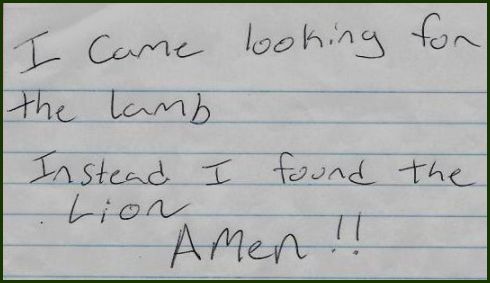 I Came looking for
the lamb
Instead I found the
Lion
Amen!!